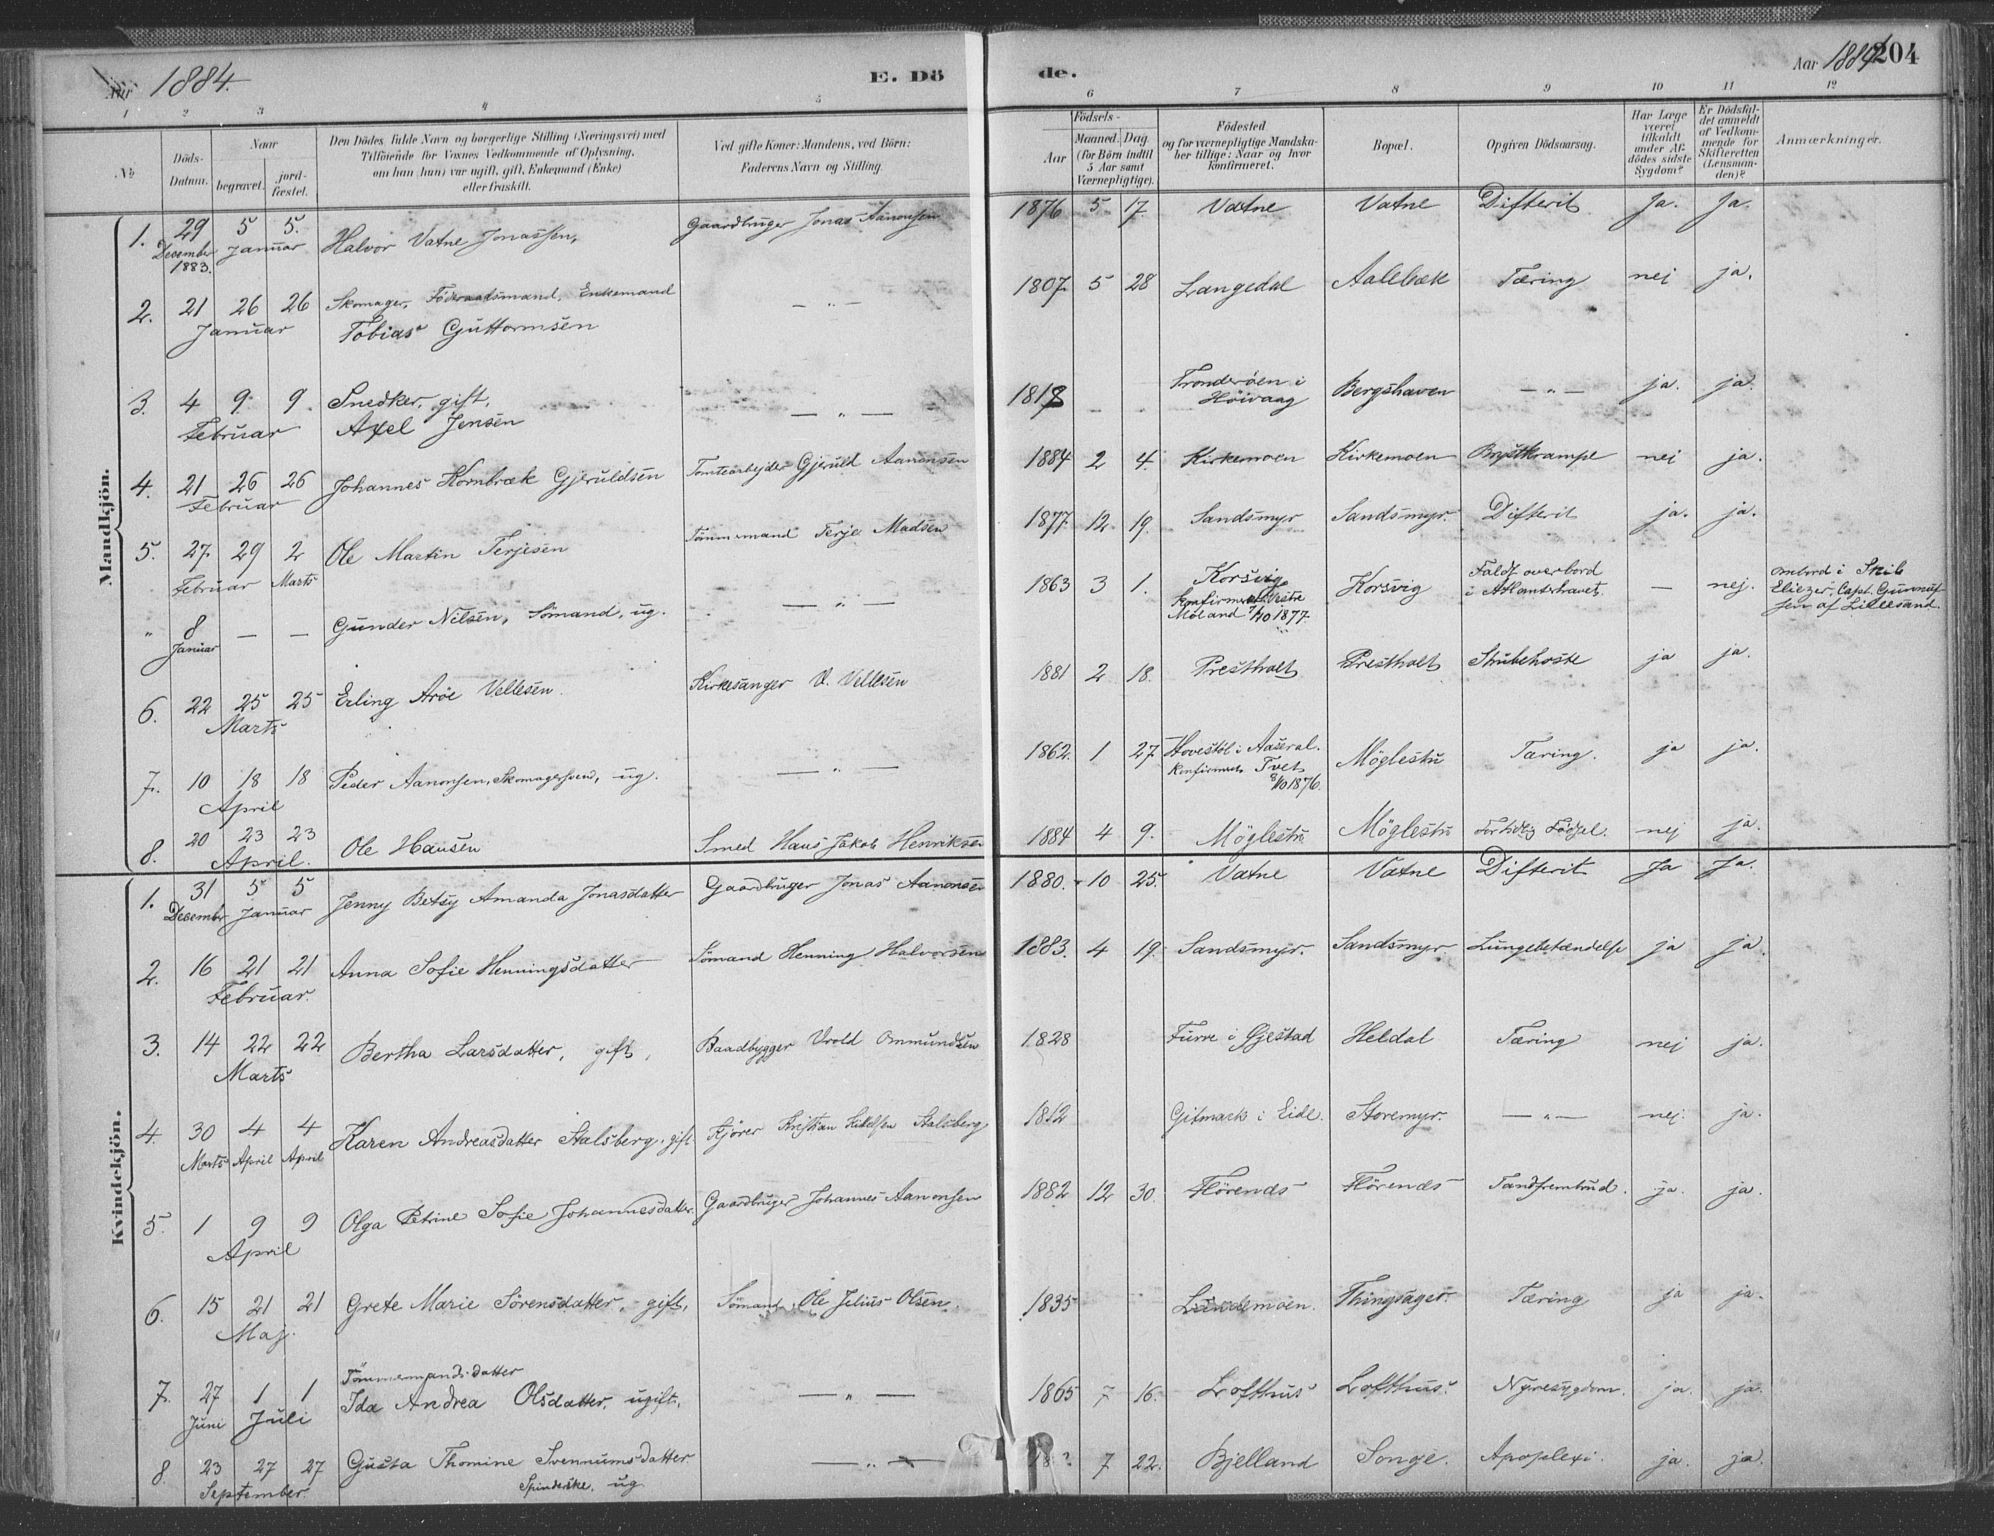 Aar 1884. E. Dö de. Aar 1884 204
1 2 3 4 5 6 7 8 9 10 11 12
No. Döds-Datum. Naar begravet. jordfæstet. Den Dödes fulde Navn og borgerlige Stilling (Næringsvei) med Tilföiende for Voxnes Vedkommende af Oplysning, om han (hun) var ugift, gift, Enkemand (Enke) eller fraskilt. Ved gifte Koner: Mandens, ved Börn: Faderens Navn og Stilling. Födsels- Aar Maaned. Dag (for Börn indtil 5 Aar samt Værnepligtige). Födested og for værnepligtige Mandskaber tillige: Naar og hvor konfirmeret. Bopæl. Opgiven Dödsaarsag. Har Læge været tilkaldt under Afdödes sidste Sygdom? Er Dödsfaldet anmeldt af Vedkommende for Skifteretten (Lensmanden)? Anmærkninger.
Mandkjön.
1. 29 December 1883. 5 5. Januar Halvor Vatne Jonassen, Gaardbruger Jonas Aanonsen 1876 5 17. Vatne Vatne Difterit Ja. Ja.
2. 21 26 26 Januar Skomager, Föderaadsmand, Enkemand Tobias Guttormsen — " — 1807. 5 28 Langedal Aalebæk Tæring nej ja.
3. 4 9 9. Februar Snedker, gift, Axel Jensen — " — 1818 Tronderöen i Höivaag Bergshaven — " — ja. ja.
4. 21 26 26 Februar Johannes Kornbræk Gjeruldsen Tomtearbejder Gjeruld Aanonsen 1884 2 4. Kirkemoen Kirkemoen Brystkrampe nej ja.
5. 27. 29 2 Februar Marts Ole Martin Terjesen Tömmermand Terje Madsen 1877. 12. 19. Sandsmyr Sandsmyr. Difterit ja. ja.
" 8 Januar — — Gunder Nilsen, Sömand, ug. — " — 1863 3 1. Korsvig konfirmeret Vestre Moland 7/10 1877. Korsvig Faldt overbord i Atlanterhavet. — nej. ombord i Skib Eliezer, Capt. Gunnufsen af Lillesand.
6. 22 25 25 Marts Erling Aröe Vellesen. Kirkesanger V. Vellesen 1881 2 18. Prestholt Prestholt Strubehoste ja ja.
7. 10 18 18 April Peder Aanonsen, Skomagersvend, ug. — " — 1862. 1 27. Hovestöl i Aaseral. konfirmert Tvet 8/10 1876. Möglestu Tæring. ja ja.
8. 20 23 23 April. Ole Hansen Smed Hans Jakob Henriksen 1884 4 9. Möglestu Möglestu For tidlig Födsel. nej ja.
Kvindekjön.
1. 31 December 5 5 Januar Jenny Betsy Amanda Jonasdatter Gaardbruger Jonas Aanonsen 1880. 10 25. Vatne Vatne Difterit Ja Ja.
2. 16 21 21 Februar. Anna Sofie Henningsdatter Sömand Henning Halvorsen 1883. 4 19. Sandsmyr. Sandsmyr. Lungebetændelse ja ja.
3. 14 22 22 Marts Bertha Larsdatter, gift, Baadbygger Vrold Ommundsen 1828 Furre i Gjestad Heldal Tæring nej ja.
4. 30 Marts 4 April 4 April Karen Andreasdatter Stalsberg, gift Kjörer Kristian Stalsberg 1812 Gitmark i Eide. Storemyr. — " — nej. ja.
5. 1 9 9 April Olga Petrine Sofie Johannesdatter. Gaardbruger Johannes Aanonsen 1882 12 30. Flörenæs Flörenæs Tandfrembrud. ja. ja.
6. 15 21 21 Maj. Grete Marie Sörensdatter, gift, Sömand Ole Julius Olsen. 1835 Lindemoen. Thingsager. Tæring ja ja.
7. 27 Juni 1 1 Juli Tömmermandsdatter Ida Andrea Olsdatter, ugift, — " — 1865 7 16. Lofthus Lofthus. Nyresygdom. ja. ja.
8. 23 27 27 September. Gusta Thomine Svennumsdatter Spinderske, ug — " — 7 22. Bjelland Songe. Apoplexi. ja. ja.